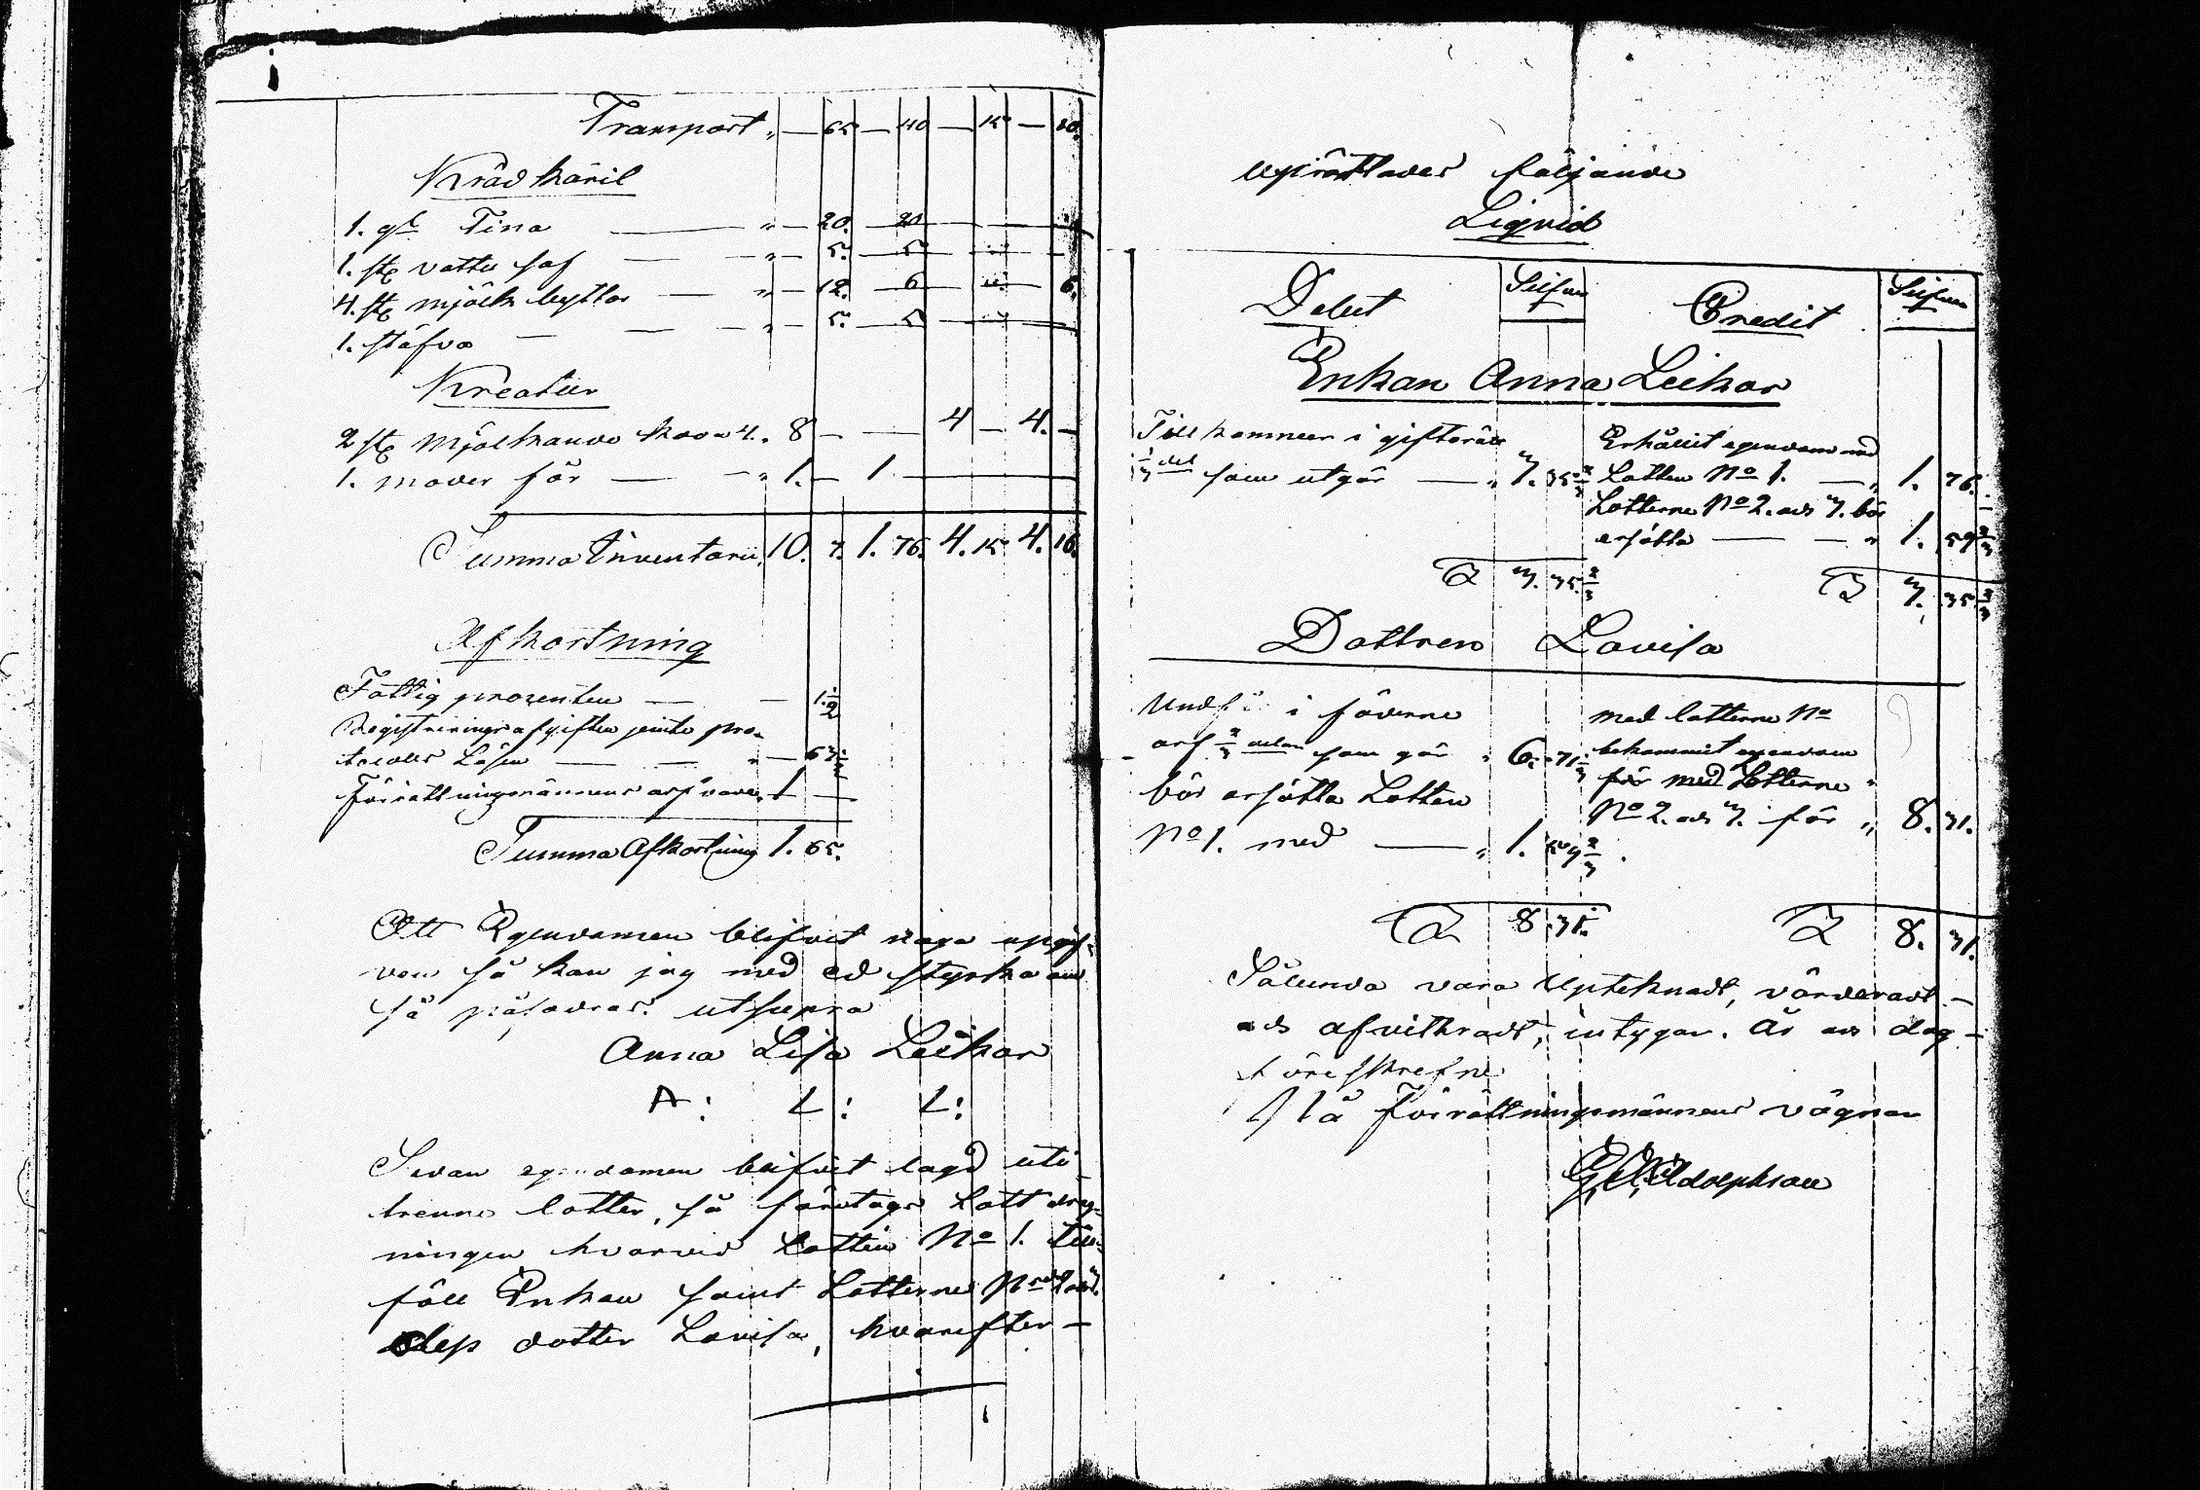 Transport „ — 65 — 40 — 15 — 10.
Kråd käril
1. gl Tina — „ — 20. — 20 — — —
1. st vatten saf — „ — 5. — 5 — —
4. st mjölk byttor — „ — 12. — 6 — — 6.
1. stäfva — „ — 5. — 5 — —
Kreatur
2 st Mjölkande koor 4. „ 8 — — 4 — 4. —
1. moder får — „ 1. — 1 — —
Summa Inventarii 10. 7. 1. 76. 4. 15 4. 16.
Afkortning
Fattig procenten — — 1 1/2
Registrerings afgiften jemte pro-
tocolls Lösen — — „ — 63 1/2
Förrättningsmännens arfvode „ 1 —
Summa Afkortning 1. 65.
Att Egendomen blifvit noga upgif-
ven så kan jag med ed styrka om
så påfodras. utsupra
Anna Lisa Leikas
A: L: L:
Sedan egendomen blifvit lagd uti
trenne lotter, så företogs Lott drag-
ningen hvarvid Lotten No 1. till-
föll Enkan samt Lotterne No 2 och 3.
dess dotter Lovisa, hvarefter —
upprättades följande
Liqvid
Debet Silfver Credit Silfver
Enkan Anna Leikas
Till kommer i giftorätt Erhållit egendom med
1/3 del som utgör — „ 3. 35 2/3 Lotten No 1. — „ 1. 76. —
Lotterne No 2. och 3. bör
ersätta — — „ 1. 59 2/3
S 3. 35 2/3 S 3. 35 2/3
Dottren Lovisa
Undfår i fäderne med lotterne No
arf 2/3 delar som gör „ 6. 71 1/3 bekommit egendom
bör ersätta Lotten för med Lotterne „
No 2. och 3. för „ 8. 31.
No 1. med — „ 1. 59 2/3.
S 8. 31. S 8. 31.
Sålunda vara Uptecknadt, värderadt —
och afvittradt, intygar. År och dag —
föreskrefne
På Förrättningsmännens vägnar
G. A. Adolphson